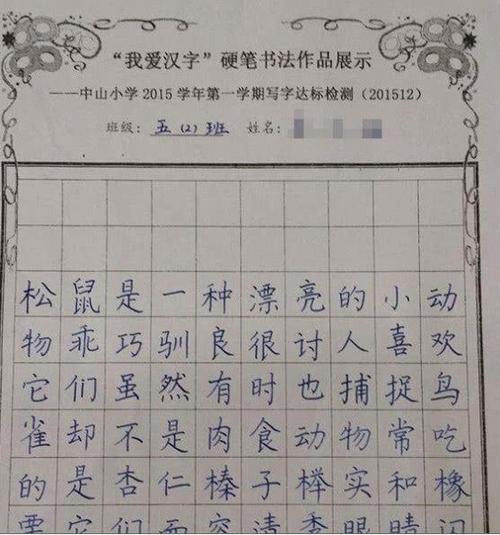 “我爱汉字”硬笔书法作品展示
——中山小学2015学年第一学期写字达标检测（201512）
班级：五（2）班 姓名：
松鼠是一种漂亮的小动
物乖巧驯良很讨人喜欢
它们虽然有时也捕捉鸟
雀却不是肉食动物常吃
的是杏仁榛子榉实和橡
栗它们面容清秀眼睛闪